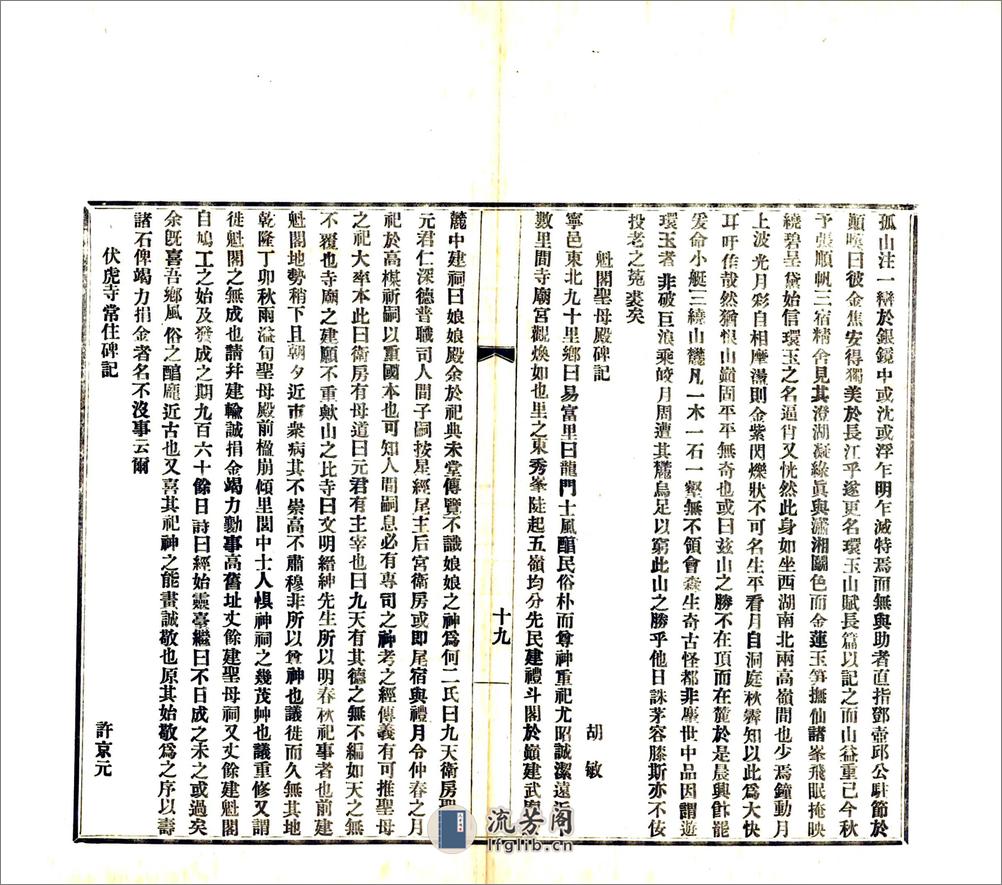 孤山注一辯於銀鏡中或沈或浮乍明乍滅特焉而無與助者直指鄧壺邱公駐節於
顚喚曰彼金焦安得獨美於長江乎遂更名環玉山賦長篇以記之而山益重已今秋
予張順帆三宿精舍見其澄湖凝綠眞與瀟湘鬭色而金蓮玉笋撫仙諸峯飛眼掩映
繞碧呈黛始信環玉之名逼肖又恍然此身如坐西湖南北兩高嶺間也少焉鐘動月
上波光月彩自相摩盪則金紫閃爍狀不可名生平看月自洞庭秋霽知以此爲大快
耳吁佳哉然猶恨山巔固平平無奇也或曰兹山之勝不在頂而在麓於是晨興飯罷
爰命小艇三繞山欑凡一木一石一壑無不領會蓋生奇古怪都非塵世中品因謂遊
環玉者非破巨浪乘皎月周遭其麓烏足以窮此山之勝乎他日誅茅容膝斯亦不佞
投老之菟裘矣
魁閣聖母殿碑記 胡敏
寧邑東北九十里鄉曰易富里曰龍門士風醕民俗朴而尊神重祀尤昭誠潔遠近
數里間寺廟宮觀煥如也里之東秀峯陡起五嶺均分先民建禮斗閣於巔建武廟
十九
麓中建祠曰娘娘殿余於祀典未堂傳覽不識娘娘之神爲何二氏曰九天衛房聖
元君仁深德普職司人間子嗣按星經尾主后宮衛房或即尾宿與禮月令仲春之月
祀於高楳祈嗣以重國本也可知人間嗣息必有專司之神考之經傳義有可推聖母
之祀大率本此曰衛房有母道曰元君有主宰也曰九天有其德之無不編如天之無
不覆也寺廟之建願不重歟山之比寺曰文明縉紳先生所以明春秋祀事者也前建
魁閣地勢稍下且朝夕近市衆病其不崇高不肅穆非所以尊神也議徙而久無其地
乾隆丁卯秋雨溢旬聖母殿前楹崩傾里閣中士人惧神祠之幾茂艸也議重修又謂
徙魁閣之無成也請幷建輸誠捐金竭力勷事高舊址丈餘建聖母祠又丈餘建魁閣
自鳩工之始及發成之期九百六十餘日詩曰經始靈臺繼曰不日成之未之或過矣
余旣喜吾鄉風俗之醕龎近古也又喜其祀神之能畫誠敬也原其始敬爲之序以壽
諸石俾竭力捐金者名不沒事云爾
伏虎寺常住碑記 許京元
流芳阁
lfglib.cn